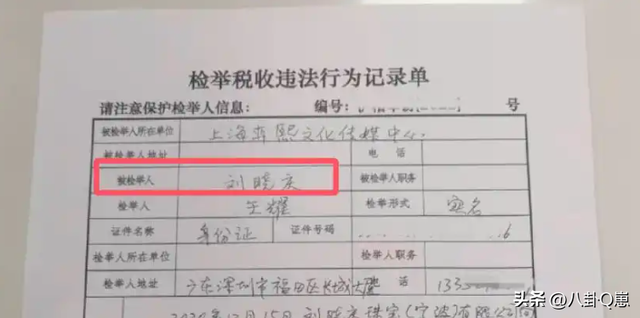 检举税收违法行为记录单
请注意保护检举人信息: 编号: 号
被检举人所在单位 上海 熙文化传媒中心
被检举人地址 电话
被检举人 刘晓庆 被检举人职务
检举人 王耀 检举形式 实名
证件名称 身份证 证件号码 6
检举人所在单位 检举人职务
检举人地址 广东深圳市福田区长城大厦 133
年12月15日刘晓庆珠宝(宁波)有限公司向
头条 @八卦Q崽